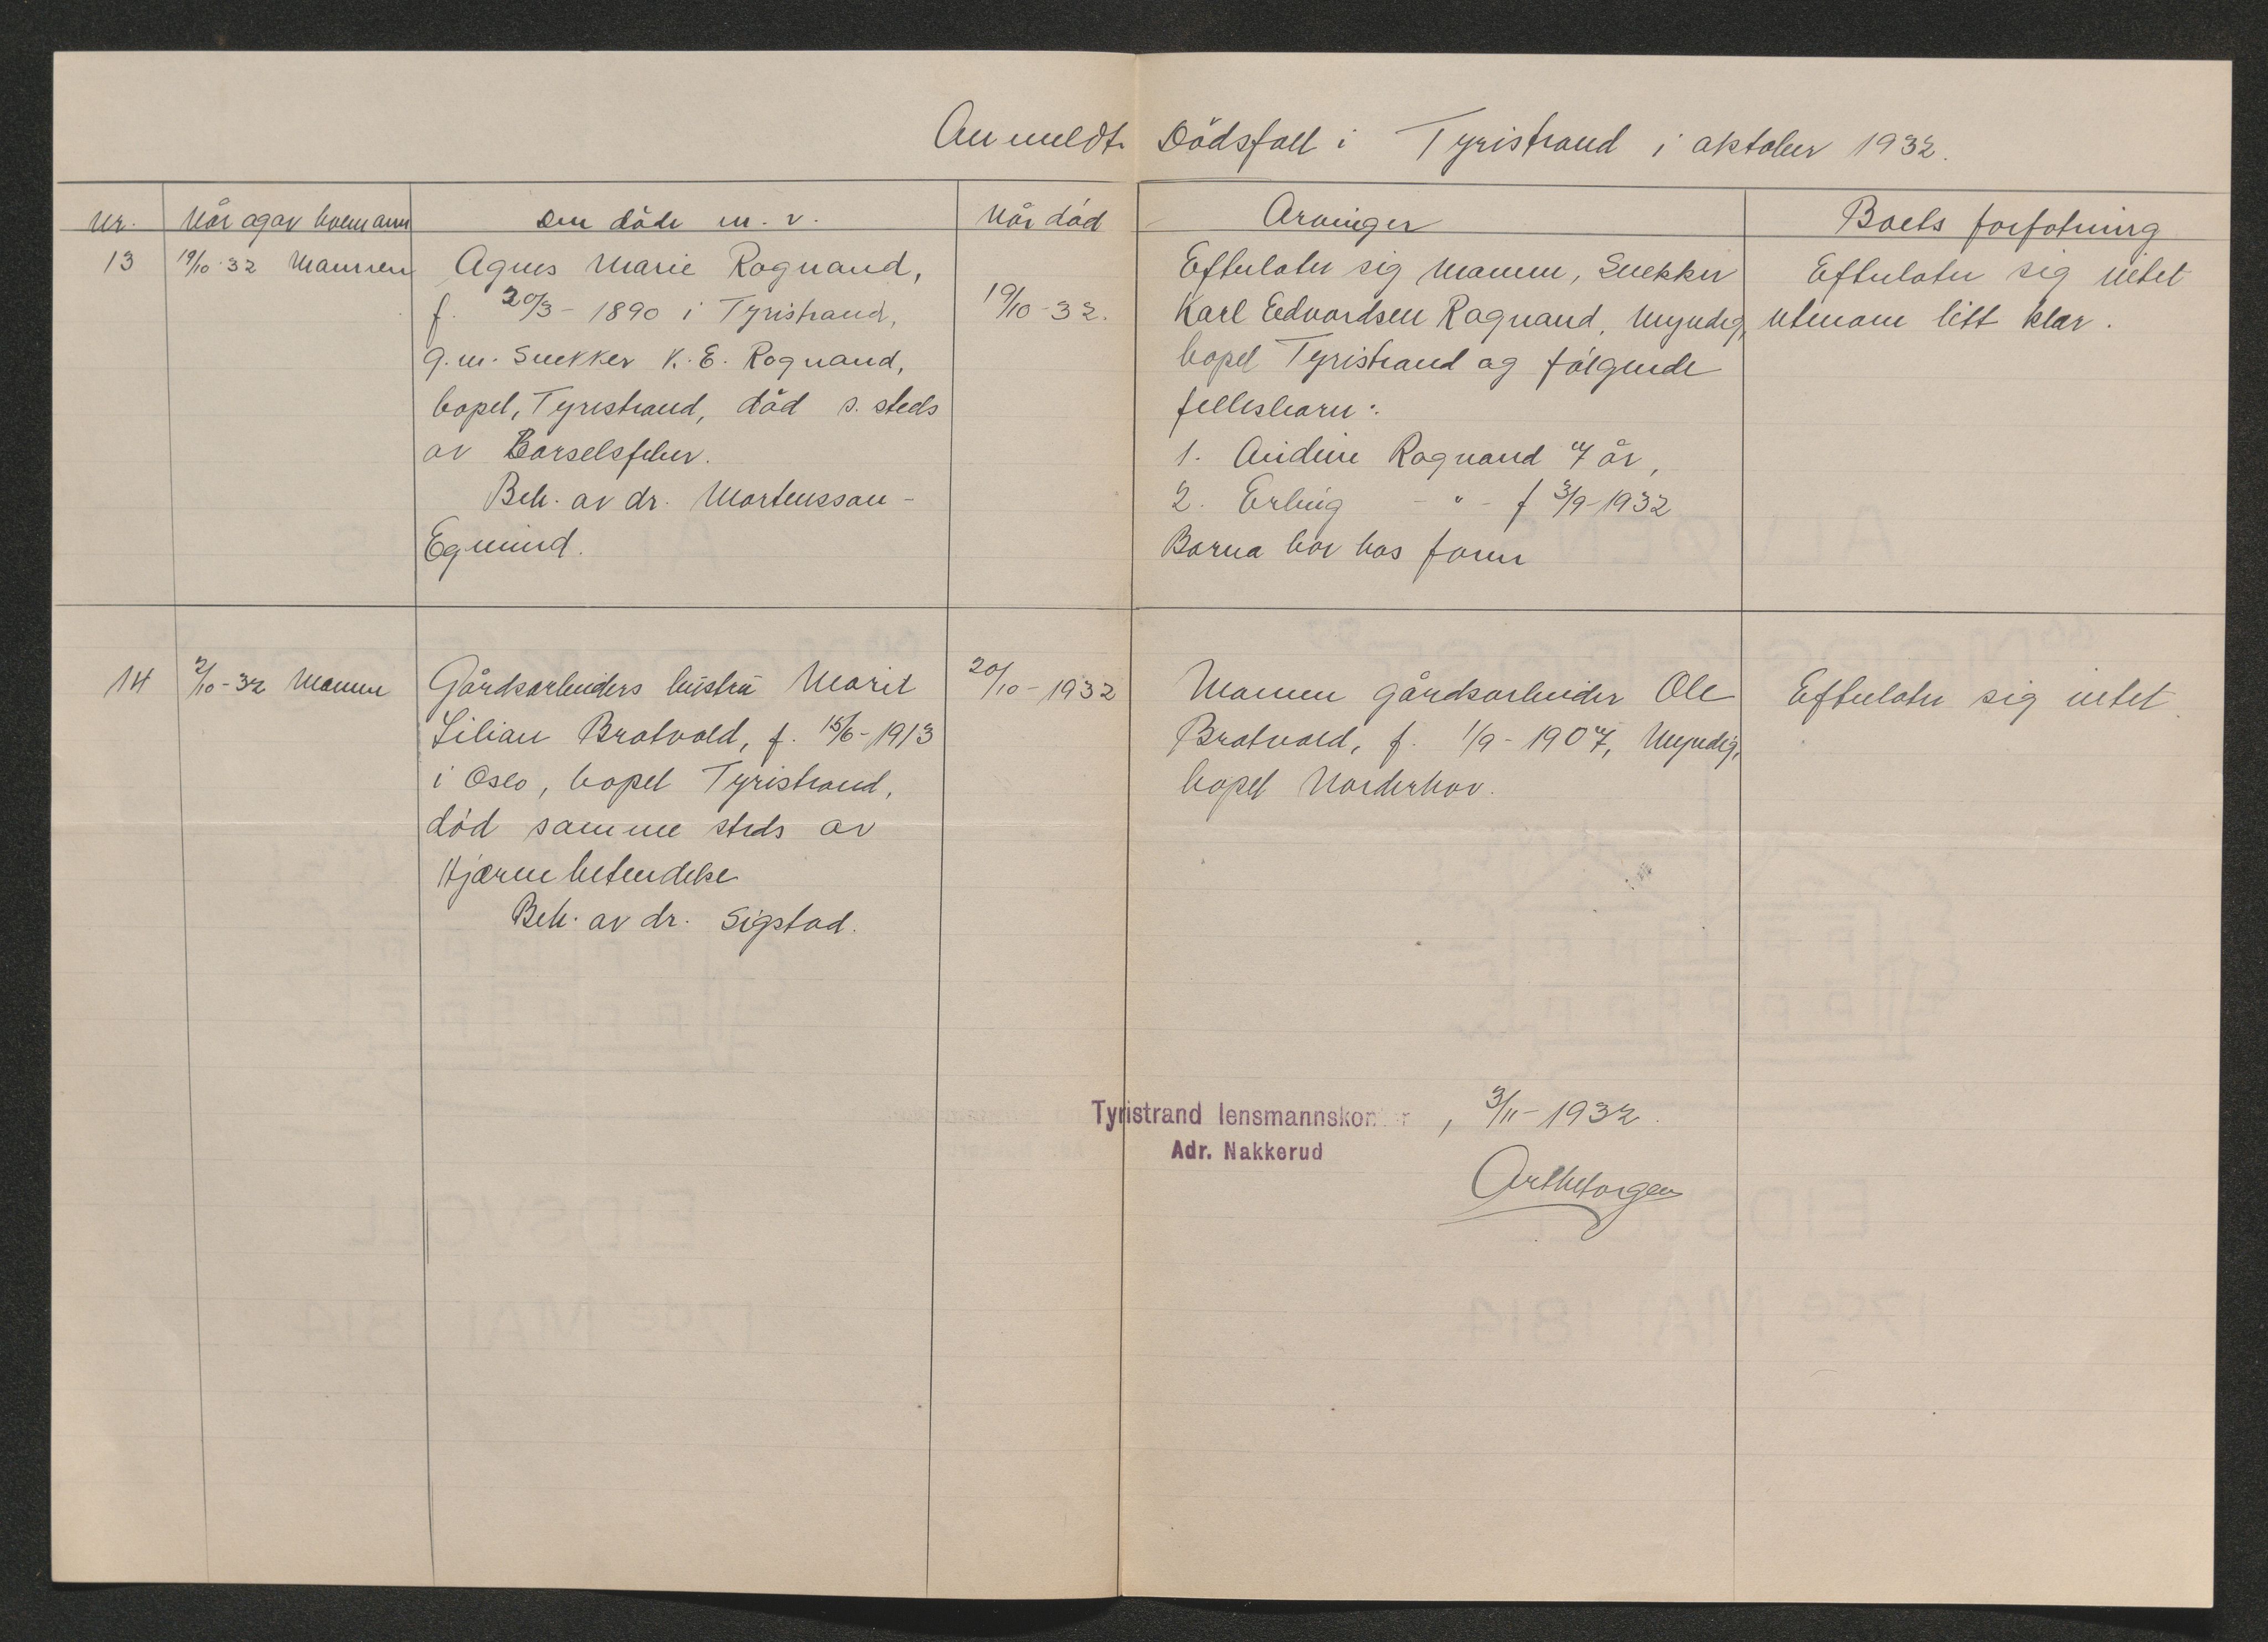 Anmeldt Dödsfall i Tyristrand i oktober 1932.
Nr. Når og av hvem anm Den döde m. v. Når död Arvinger Boets forfatning
13 19/10-32 Mannen Agnes Marie Rognand,
f. 20/3-1890 i Tyristrand,
g.m. Snekker K.E. Rognand,
bopel, Tyristrand, död s. steds
av Barselsfeber.
Beh. av dr. Mortensson-
Egnund.
19/10-32.
Efterlater sig Mannen, Snekker
Karl Edvardsen Rognand, Myndig,
bopel Tyristrand og fölgende
fellesbarn:
1. Andine Rognand 7 år,
2. Erling -"- f 3/9-1932
Barna bor hos faren
Efterlater sig intet
utenom litt klær.
14 2/10-32 Mannen Gårdsarbeiders hustru Marit
Lilian Bratvold, f. 15/6-1913
i Oslo, bopel Tyristrand,
död samme steds av
Hjærnebetendelse
Beh. av dr. Sigstad.
20/10-1932
Mannen gårdsarbeider Ole
Bratvold, f. 1/9-1907, Myndig,
bopel Norderhov.
Efterlater sig intet.
Tyristrand lensmannskontor, 3/11-1932.
Adr. Nakkerud